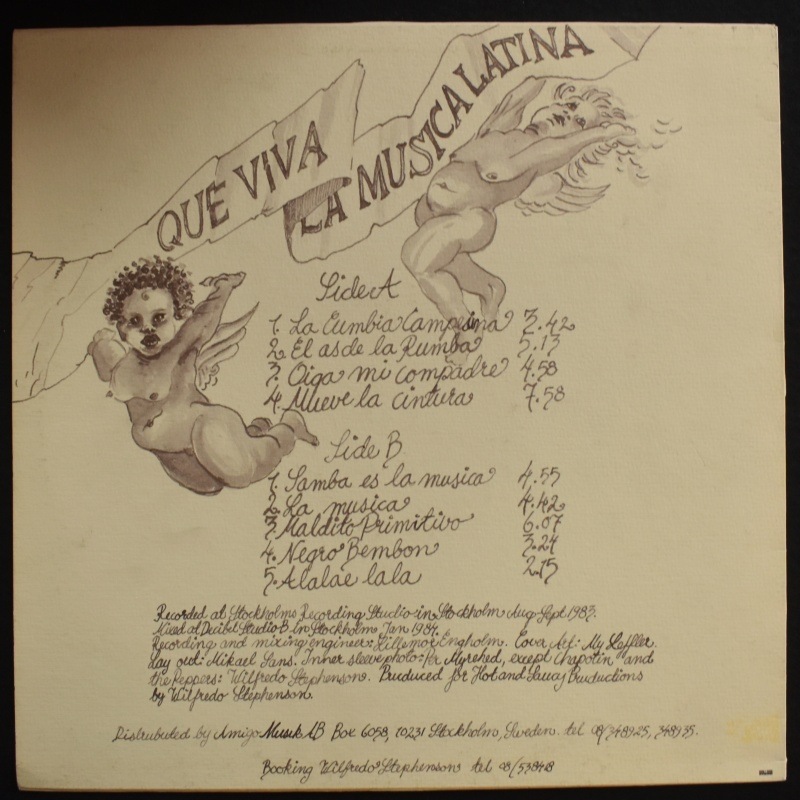 QUE VIVA
LA MUSICA LATINA
Side A
1. La Cumbia Campesina 3.42
2. El as de la Rumba 5.13
3. Oiga mi compadre 4.58
4. Mueve la cintura 7.58
Side B
1. Samba es la musica 4.55
2. La musica 4.42
3. Maldito Primitivo 6.07
4. Negro Bembon 3.24
5. Alalae lala 2.15
Recorded at Stockholms Recording Studio in Stockholm Aug-Sept 1983.
Mixed at Decibel Studio B in Stockholm Jan 1984.
Recording and mixing engineer: Lillemor Engholm. Cover Art: My
Lay out: Mikael Sans. Inner sleevephoto: Myrehed, except Chapotin and
the Peppers: Wilfredo Stephenson. Produced for Hot and Saucy Productions
by Wilfredo Stephenson.
Distrubuted by Amigo Musik AB Box 6058, 10231 Stockholm, Sweden. tel 08/348925, 348935.
Booking Wilfredo Stephenson tel 08/538418